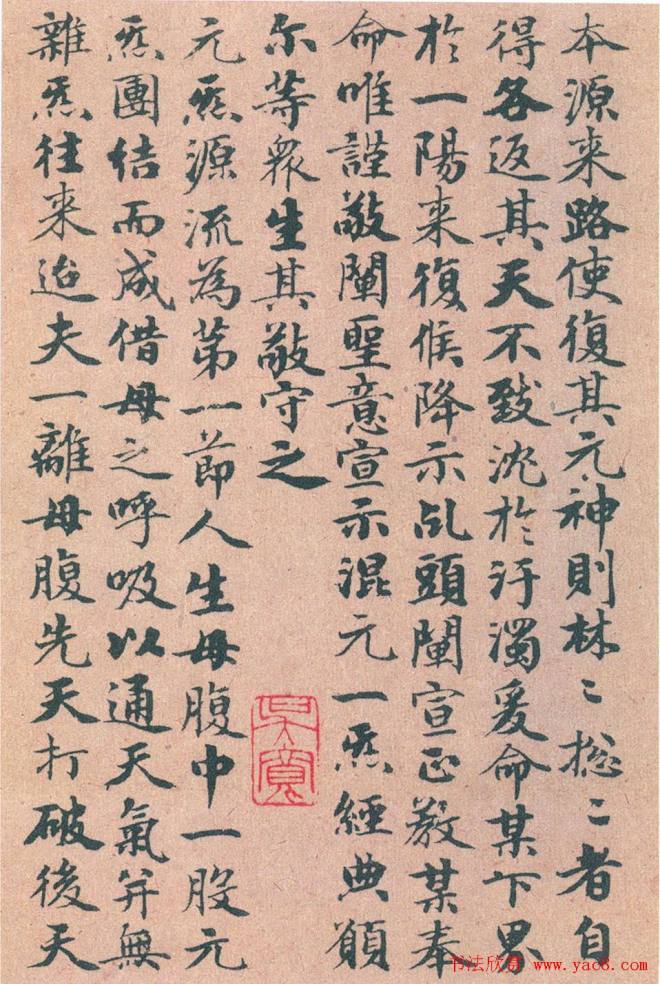 本源来路使復其元神則林〻揔〻者自
得各返其天不致沈於汙濁爰命某下界
於一陽来復候降示乩頭闡宣正教某奉
命唯謹敬闡聖意宣示混元一炁經典願
尔等衆生其敬守之
吴寬
元炁源流為苐一節人生母腹中一股元
炁團结而成借母之呼吸以通天氣并無
雜炁往来迨夫一離母腹先天打破後天
书法欣赏 www.yac8.com